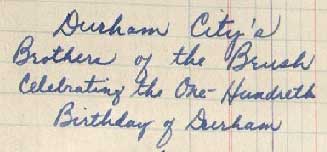 Durham City's
Brothers of the Brush
Celebrating the One-Hundreth
Birthday of Durham